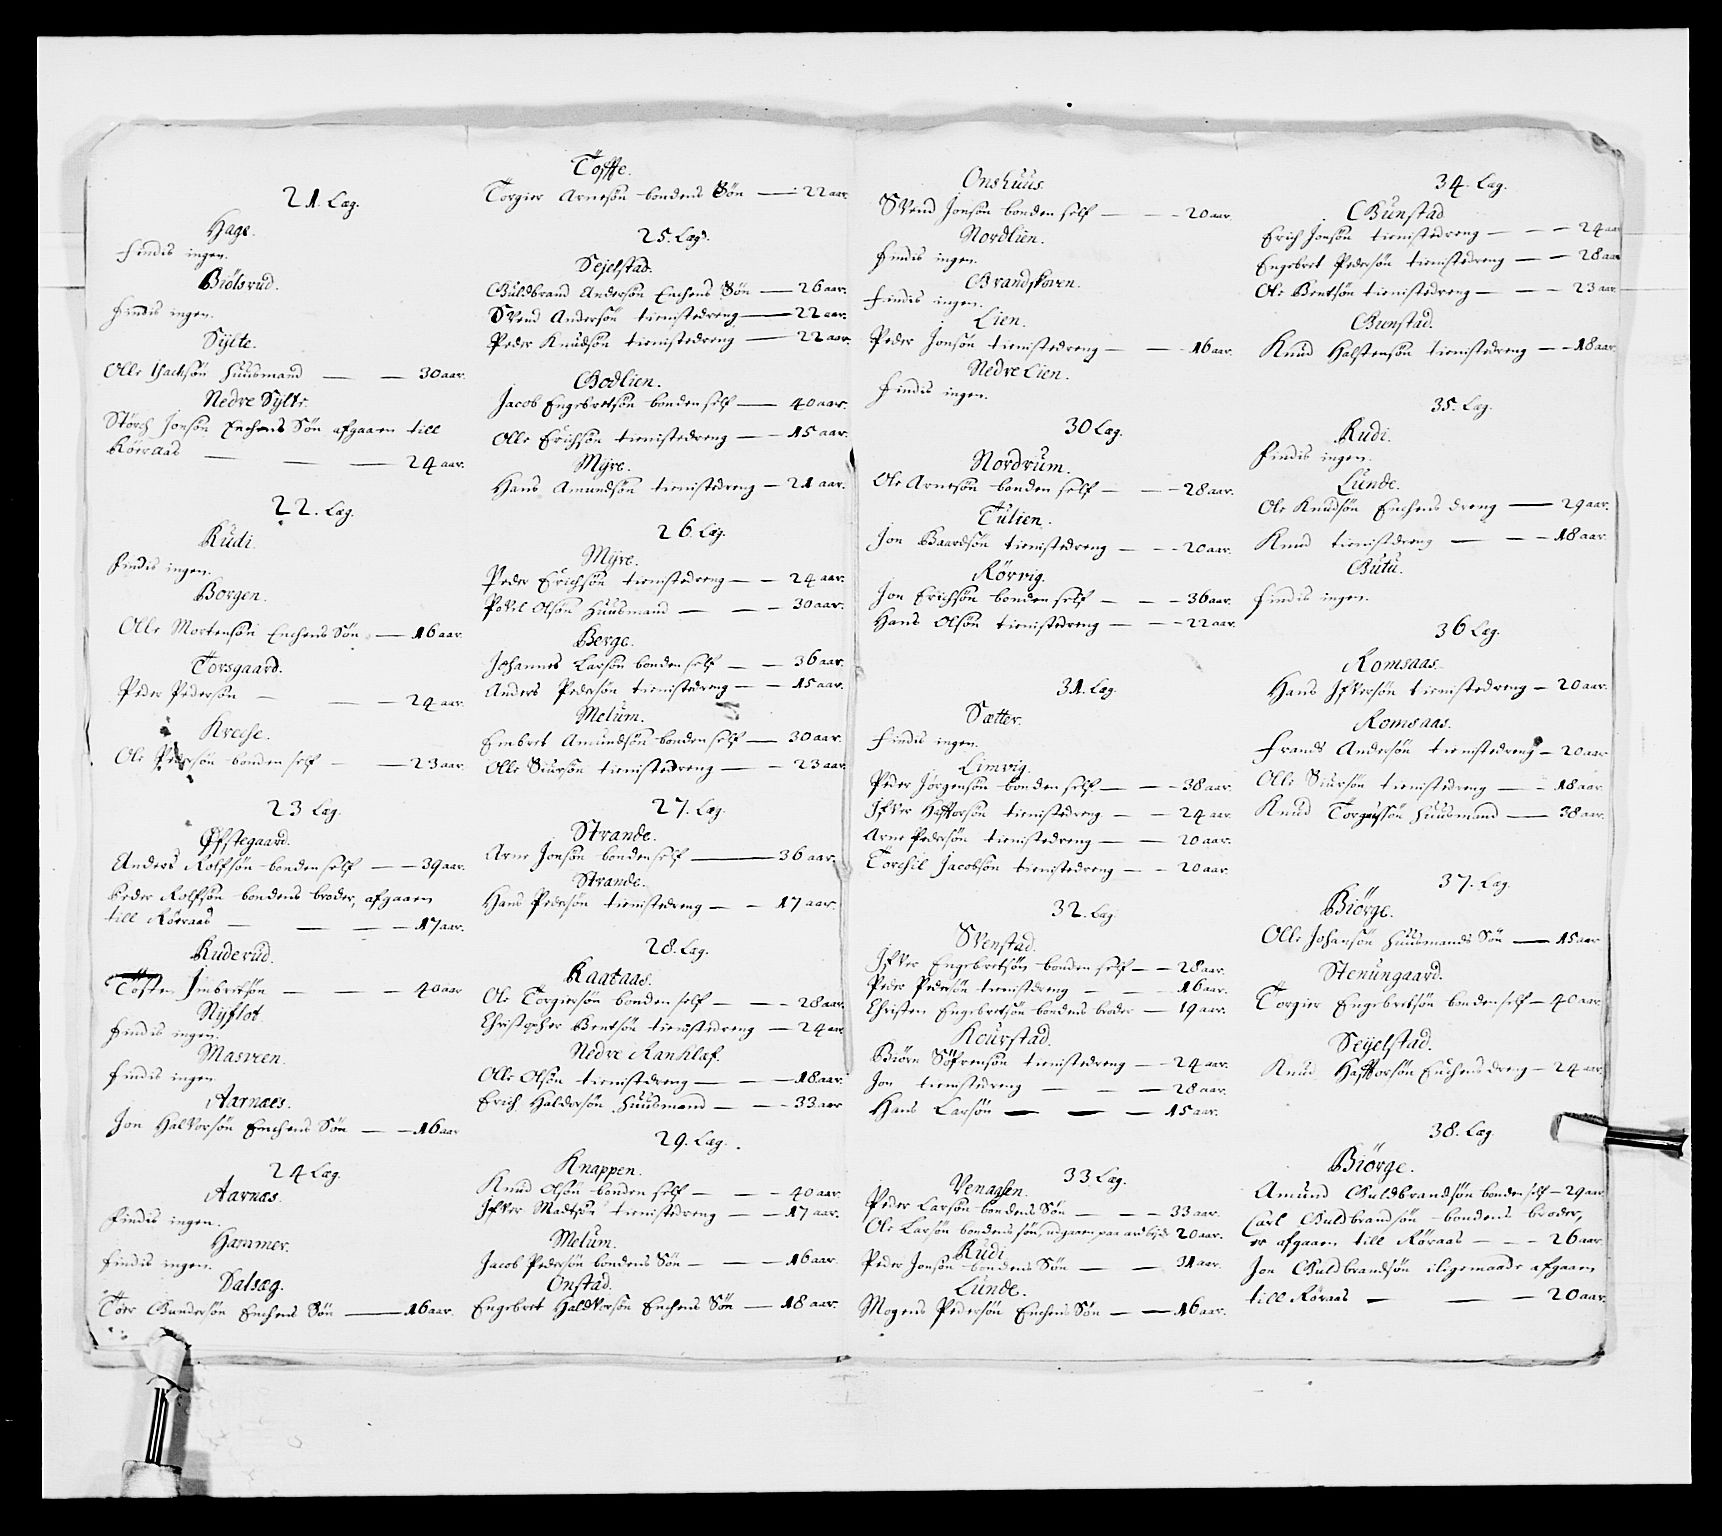 21. Læg.
Hage.
findis ingen.
Biölsrud.
findis ingen.
Sylte.
Olle Isachsön Huusmand — — 30 aar.
Nedre Sylte.
Störch Jonsön Enchens Sön afgaaen till
Röeraas — — — 24 aar.
22. Læg.
Rudi.
findis ingen.
Borgen.
Olle Mortensön Enchens Sön — 16 aar.
Torsgaard.
Peder Pedersön — — — 24 aar.
Kreche.
Ole Pedersön bonden self — — 23 aar.
23 Læg.
Öfstegaard.
Anders Rolfsön bonden self — 39 aar.
Peder Rolfsön bondens broder, afgaaen
till Röeraas — — — 17 aar.
Ruderud.
Tosten Jmbretsön — — — 40 aar
Nyflot.
findis ingen.
Masveen.
findis ingen.
Aarnæs.
Jon Halvorsön Enchens Sön — — 16 aar
24 Læg.
Aarnæs.
findis ingen.
Hammer.
findis ingen.
Dalsæg.
Tore Gundersön Enchens Sön — 16 aar.
Tofte.
Torgier Arnesön bondens Sön — 22 aar.
25. Læg.
Sejelstad.
Guldbrand Andersön Enchens Sön — 26 aar.
Svend Andersön tienistedreng — 22 aar.
Peder Knudsön tienistedreng — 22 aar.
Bodlien.
Jacob Engebretsön bonden self — 40 aar.
Olle Erichsön tienistedreng — 15 aar.
Myre.
Hans Amundsön tienistedreng — 21 aar.
26. Læg.
Myre.
Peder Erichsön tienistedreng — — 24 aar.
Povel Olsön Huusmand — — 30 aar.
Berge.
Johannes Larsön bonden self — — 36 aar.
Anders Pedersön tienistedreng — — 15 aar.
Melum.
Embret Amundsön bonden self — 30 aar.
Olle Siursön tienistedreng — — 23 aar.
27. Læg.
Strande.
Arne Jonsön bonden self — 36 aar.
Strande.
Hans Pedersön tienistedreng — — 17 aar.
28. Læg.
Kaataas.
Ole Torgiersön bonden self — — 28 aar.
Christopher Bentsön tienistedreng — 24 aar
Nedre Ranklaf.
Olle Olsön tienistedreng — — 18 aar.
Erich Haldorsön Huusmand — — 33 aar
29. Læg.
Knappen.
Knud Olsön bonden self — — 40 aar.
Jfver Madtsön tienistedreng — — 17 aar.
Melum.
Jacob Pedersön bondens Sön — — 16 aar.
Onstad.
Engebret Haldvorsön Enchens Sön — 18 aar.
Onshuus.
Svend Jonsön bonden self — — 20 aar.
Nordlien.
findis ingen.
Brandskoven.
findis ingen.
Lien.
Peder Jonsön tienistedreng — — 16 aar.
Nedre Lien.
findis ingen.
30 Læg.
Nordrum.
Ole Arnesön bonden self — — 28 aar.
Tulien.
Jon Baardsön tienistedreng — — 20 aar.
Rörvig.
Jon Erichsön bonden self — — 36 aar.
Hans Olsön tienistedreng — — 22 aar.
31. Læg.
Sætter.
findis ingen.
Limvig.
Peder Jörgensön bonden self — — 38 aar.
Jfver Haftorsön tienistedreng — — 24 aar.
Arne Pedersön tienistedreng — — 20 aar.
Torchil Jacobsön tienistedreng — — 20 aar.
32. Læg.
Svenstad.
Jfver Engebretsön bonden self — — 28 aar.
Peder Pedersön tienistedreng — — 16 aar.
Christen Engebretsön bondens broder — 19 aar.
Kourstad.
Biörn Söfrensön tienistedreng — 24 aar.
Jon tienistedreng — — 28 aar.
Hans Larsön — — — 15 aar.
33 Læg.
Venaasen.
Peder Larsön bondens Sön — — — 33 aar.
Ole Larsön bondens sön, udgaaen paa arbejde 20 aar.
Rudi
Peder Jonsön bondens Sön — — 31 aar.
Lunde.
Mogens Pedersön Enchens Sön — — 16 aar.
34. Læg.
Bunstad
Erich Jonsön tienistedreng — — — 24 aar
Engebret Pedersön tienistedreng — — 28 aar
Ole Bentsön tienistedreng — — — 23 aar.
Bunstad.
Knud Halstensön tienistedreng — — 18 aar.
35. Læg.
Rudi.
findis ingen.
Lunde.
Ole Knudsön Enchens dreng — 29 aar.
Knud tienistedreng — — — 18 aar.
Butu.
findis ingen.
36 Læg.
Romsaas.
Hans Jfversön tienistedreng — 20 aar.
Romsaas.
Frands Andersön tienistedreng — 20 aar
Olle Siursön tienistedreng — — 18 aar.
Knud Torgiussön Huusmand — 38 aar.
37. Læg.
Biörge.
Olle Johansön Huusmands Sön — 15 aar
Stenungaard.
Torgier Engebretsön bonden self — 40 aar.
Seyelstad.
Knud Hafftorsön Enchens dreng — 24 aar.
38. Læg.
Biörge.
Amund Guldbrandsön bonden self — 29 aar
Carl Guldbrandsön bondens broder,
er afgaaen till Röraas — — — 26 aar.
Jon Guldbrandsön iligemaade afgaaen
till Röraas — — — 20 aar.